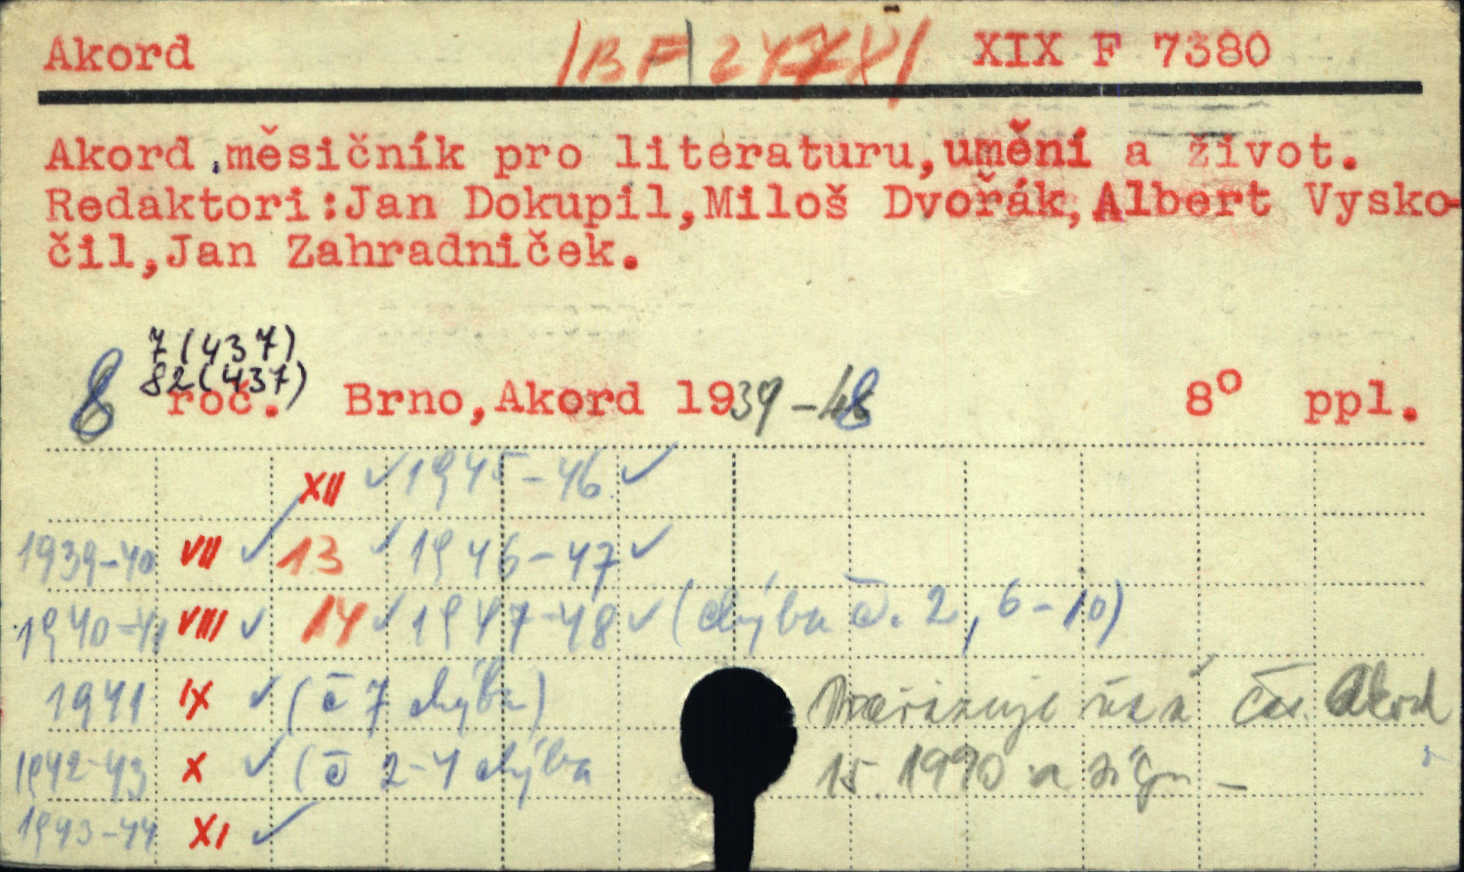 Akord /BF 247X/ XIX F 7380
Akord .měsičník pro literaturu,umění a život.
Redaktori:Jan Dokupil,Miloš Dvořák,Albert Vysko-
čil,Jan Zahradníček.
7(437)
82(437)
8 roč. Brno,Akord 1939-48 8° ppl.
XII ✓ 1945-46 ✓
1939-40 VII ✓ 13 ✓ 1946-47 ✓
1940-41 VIII ✓ 14 ✓ 1947-48 ✓ (chýba č. 2, 6-10)
1941 IX ✓ (č 7 chýba) čas. Akord
1942-43 X ✓ (č 2-4 chýba 15.1990 a sign -
1943-44 XI ✓